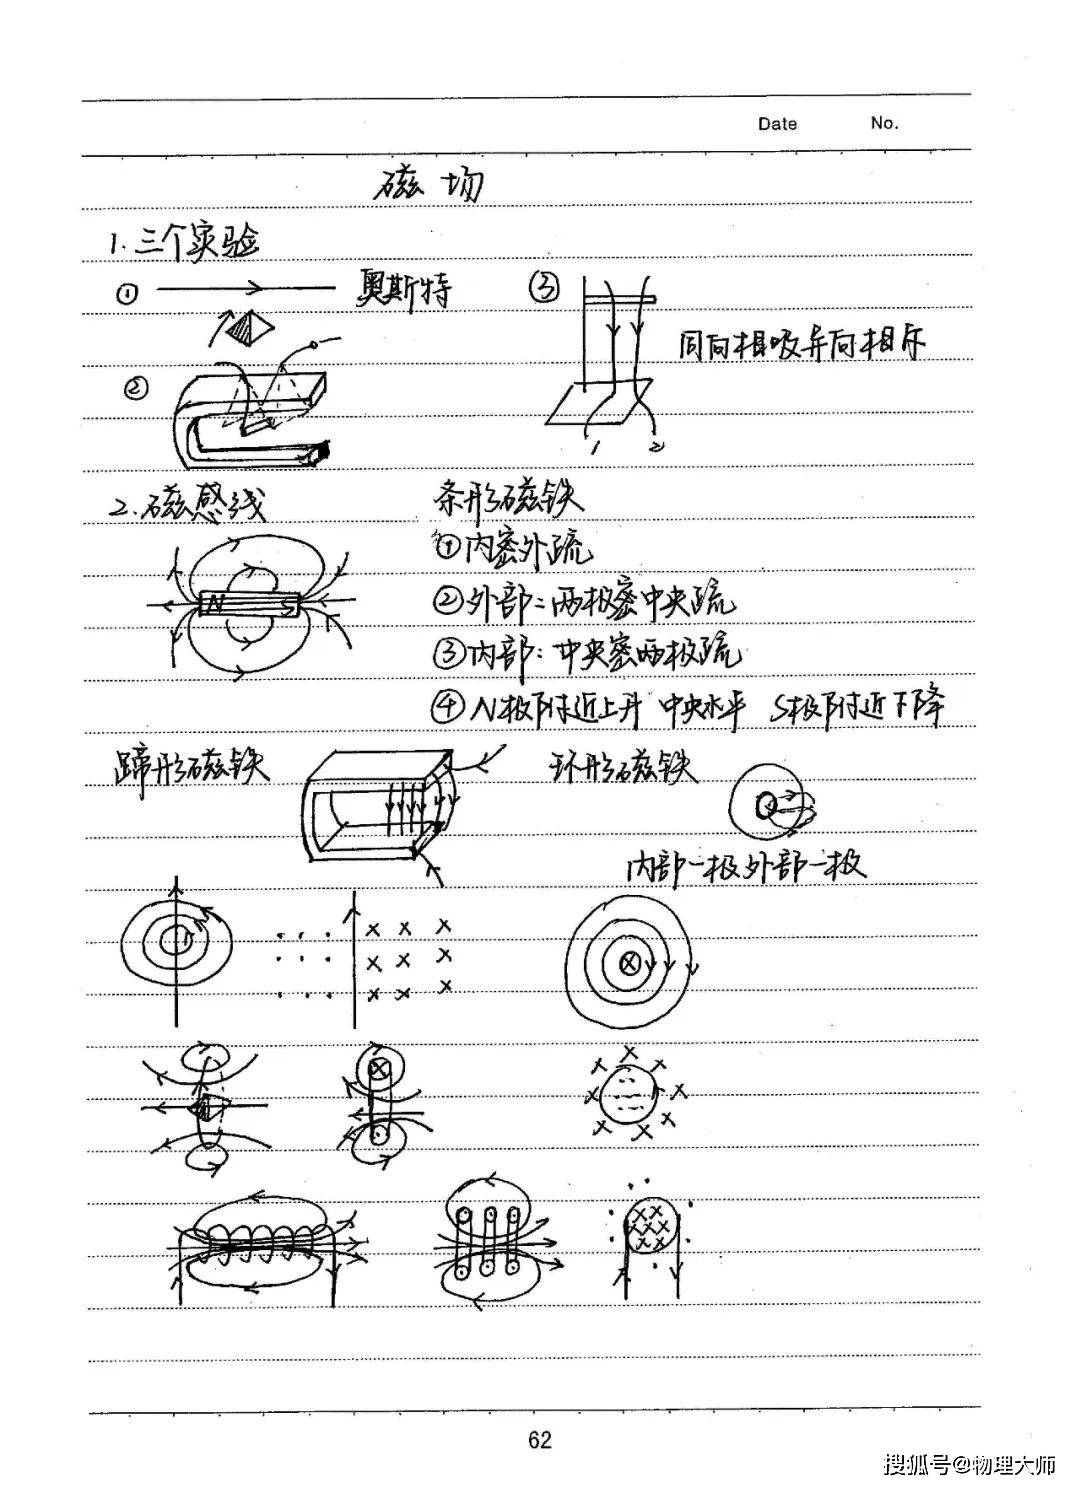 Date No.
磁场
1.三个实验
① 奥斯特 ③
同向相吸异向相斥
②
1 2
2.磁感线 条形磁铁
①内密外疏
N S
②外部:两极密中央疏
③内部:中央密两极疏
④N极附近上升 中央水平 S极附近下降
蹄形磁铁 环形磁铁
内部一极外部一极
62
搜狐号@物理大师